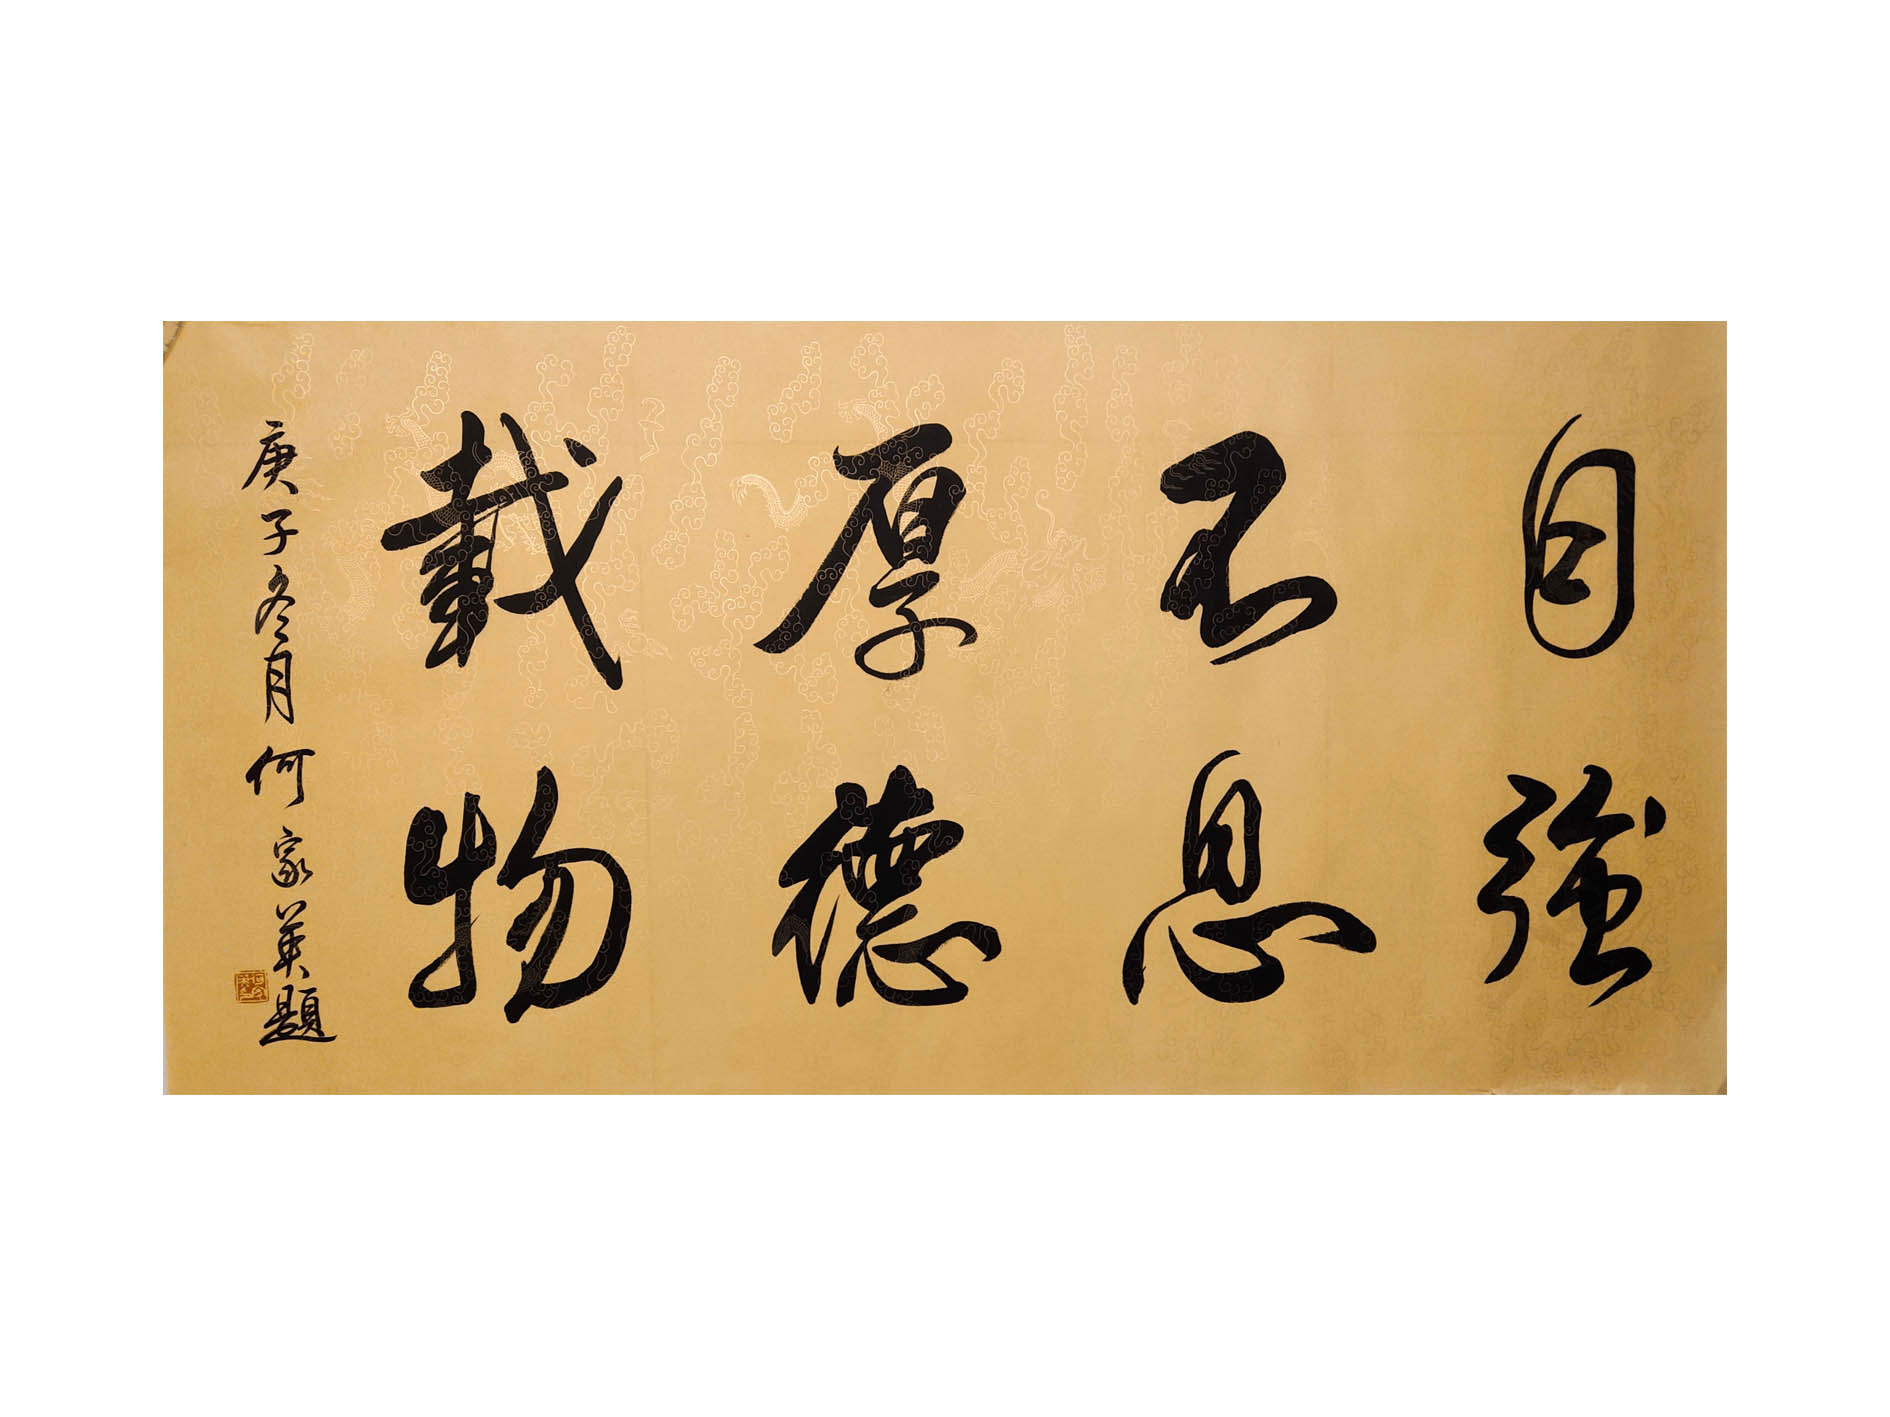 自強
不息
厚德
載物
庚子冬月何家英題